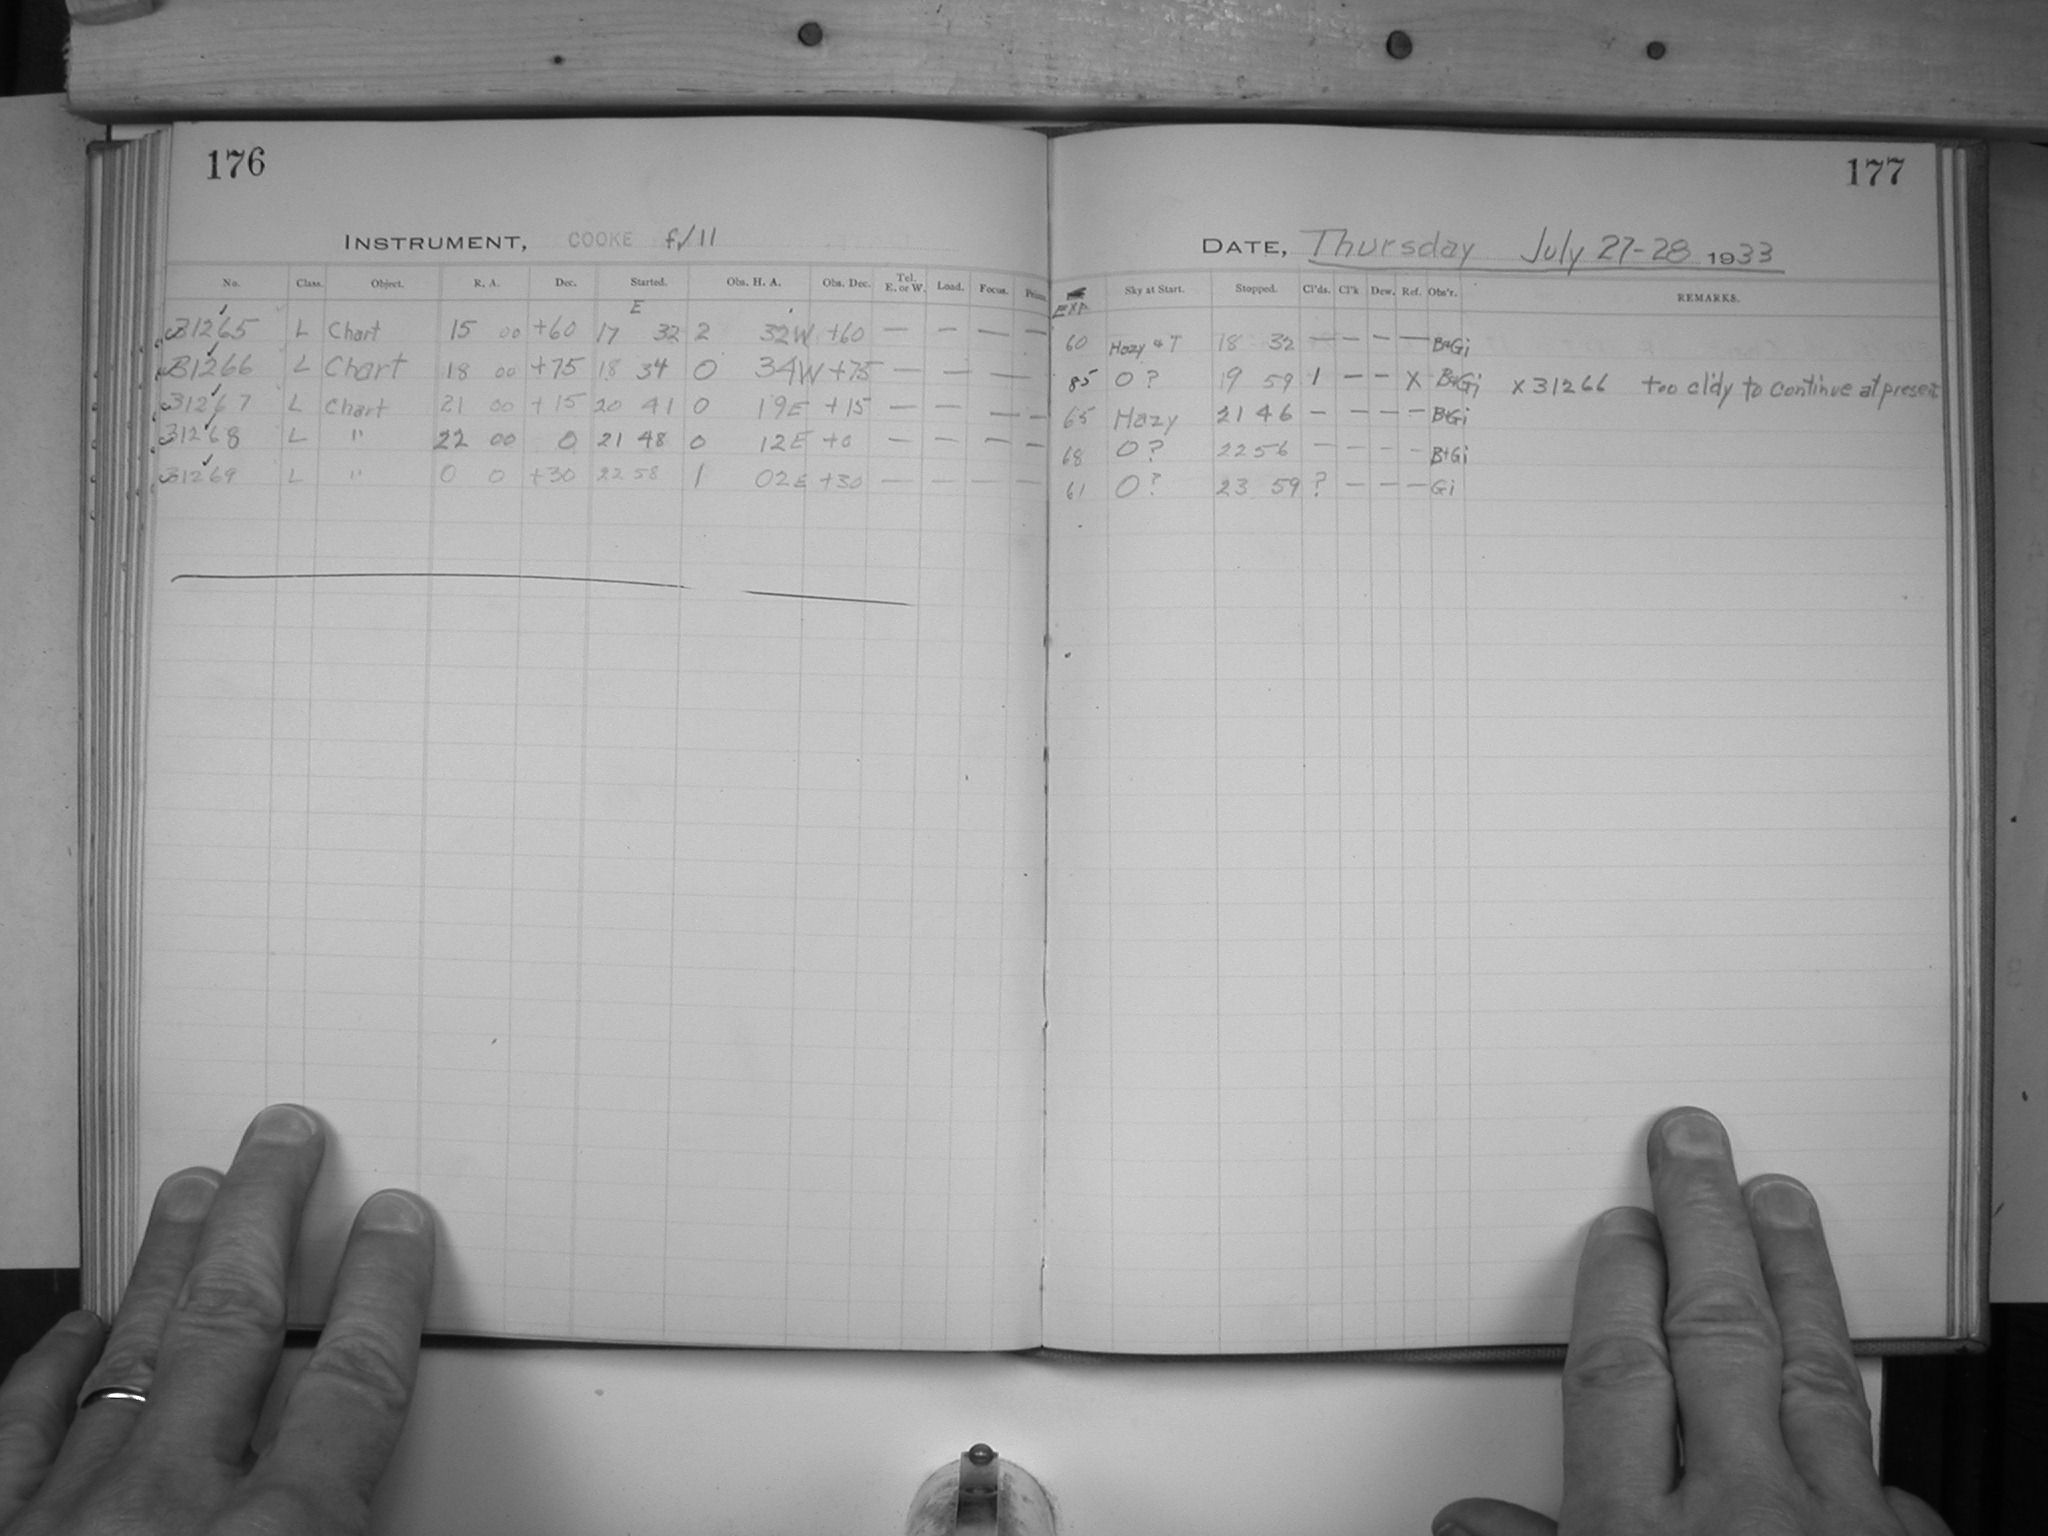 176
INSTRUMENT, COOKE f/11
No. Class. Object. R. A. Dec. Started. Obs. H. A. Obs. Dec. Tel. E. or W. Load. Focus. Prism.
E
31265 L Chart 15 00 +60 17 32 2 32W +60 — — — —
31266 L Chart 18 00 +75 18 34 0 34W +75 — — — —
31267 L Chart 21 00 +15 20 41 0 19E +15 — — — —
31268 L " 22 00 0 21 48 0 12E +0 — — — —
31269 L " 0 0 +30 22 58 1 02E +30 — — — —
177
DATE, Thursday July 27-28 1933
EXP. Sky at Start. Stopped. Cl'ds. Cl'k Dew. Ref. Obs'r. REMARKS.
60 Hazy & T 18 32 — — — — B+Gi
85 O? 19 59 1 — — X B+Gi x 31266 too cl'dy to continue at present
65 Hazy 21 46 — — — — B+Gi
68 O? 22 56 — — — — B+Gi
61 O? 23 59 ? — — — Gi